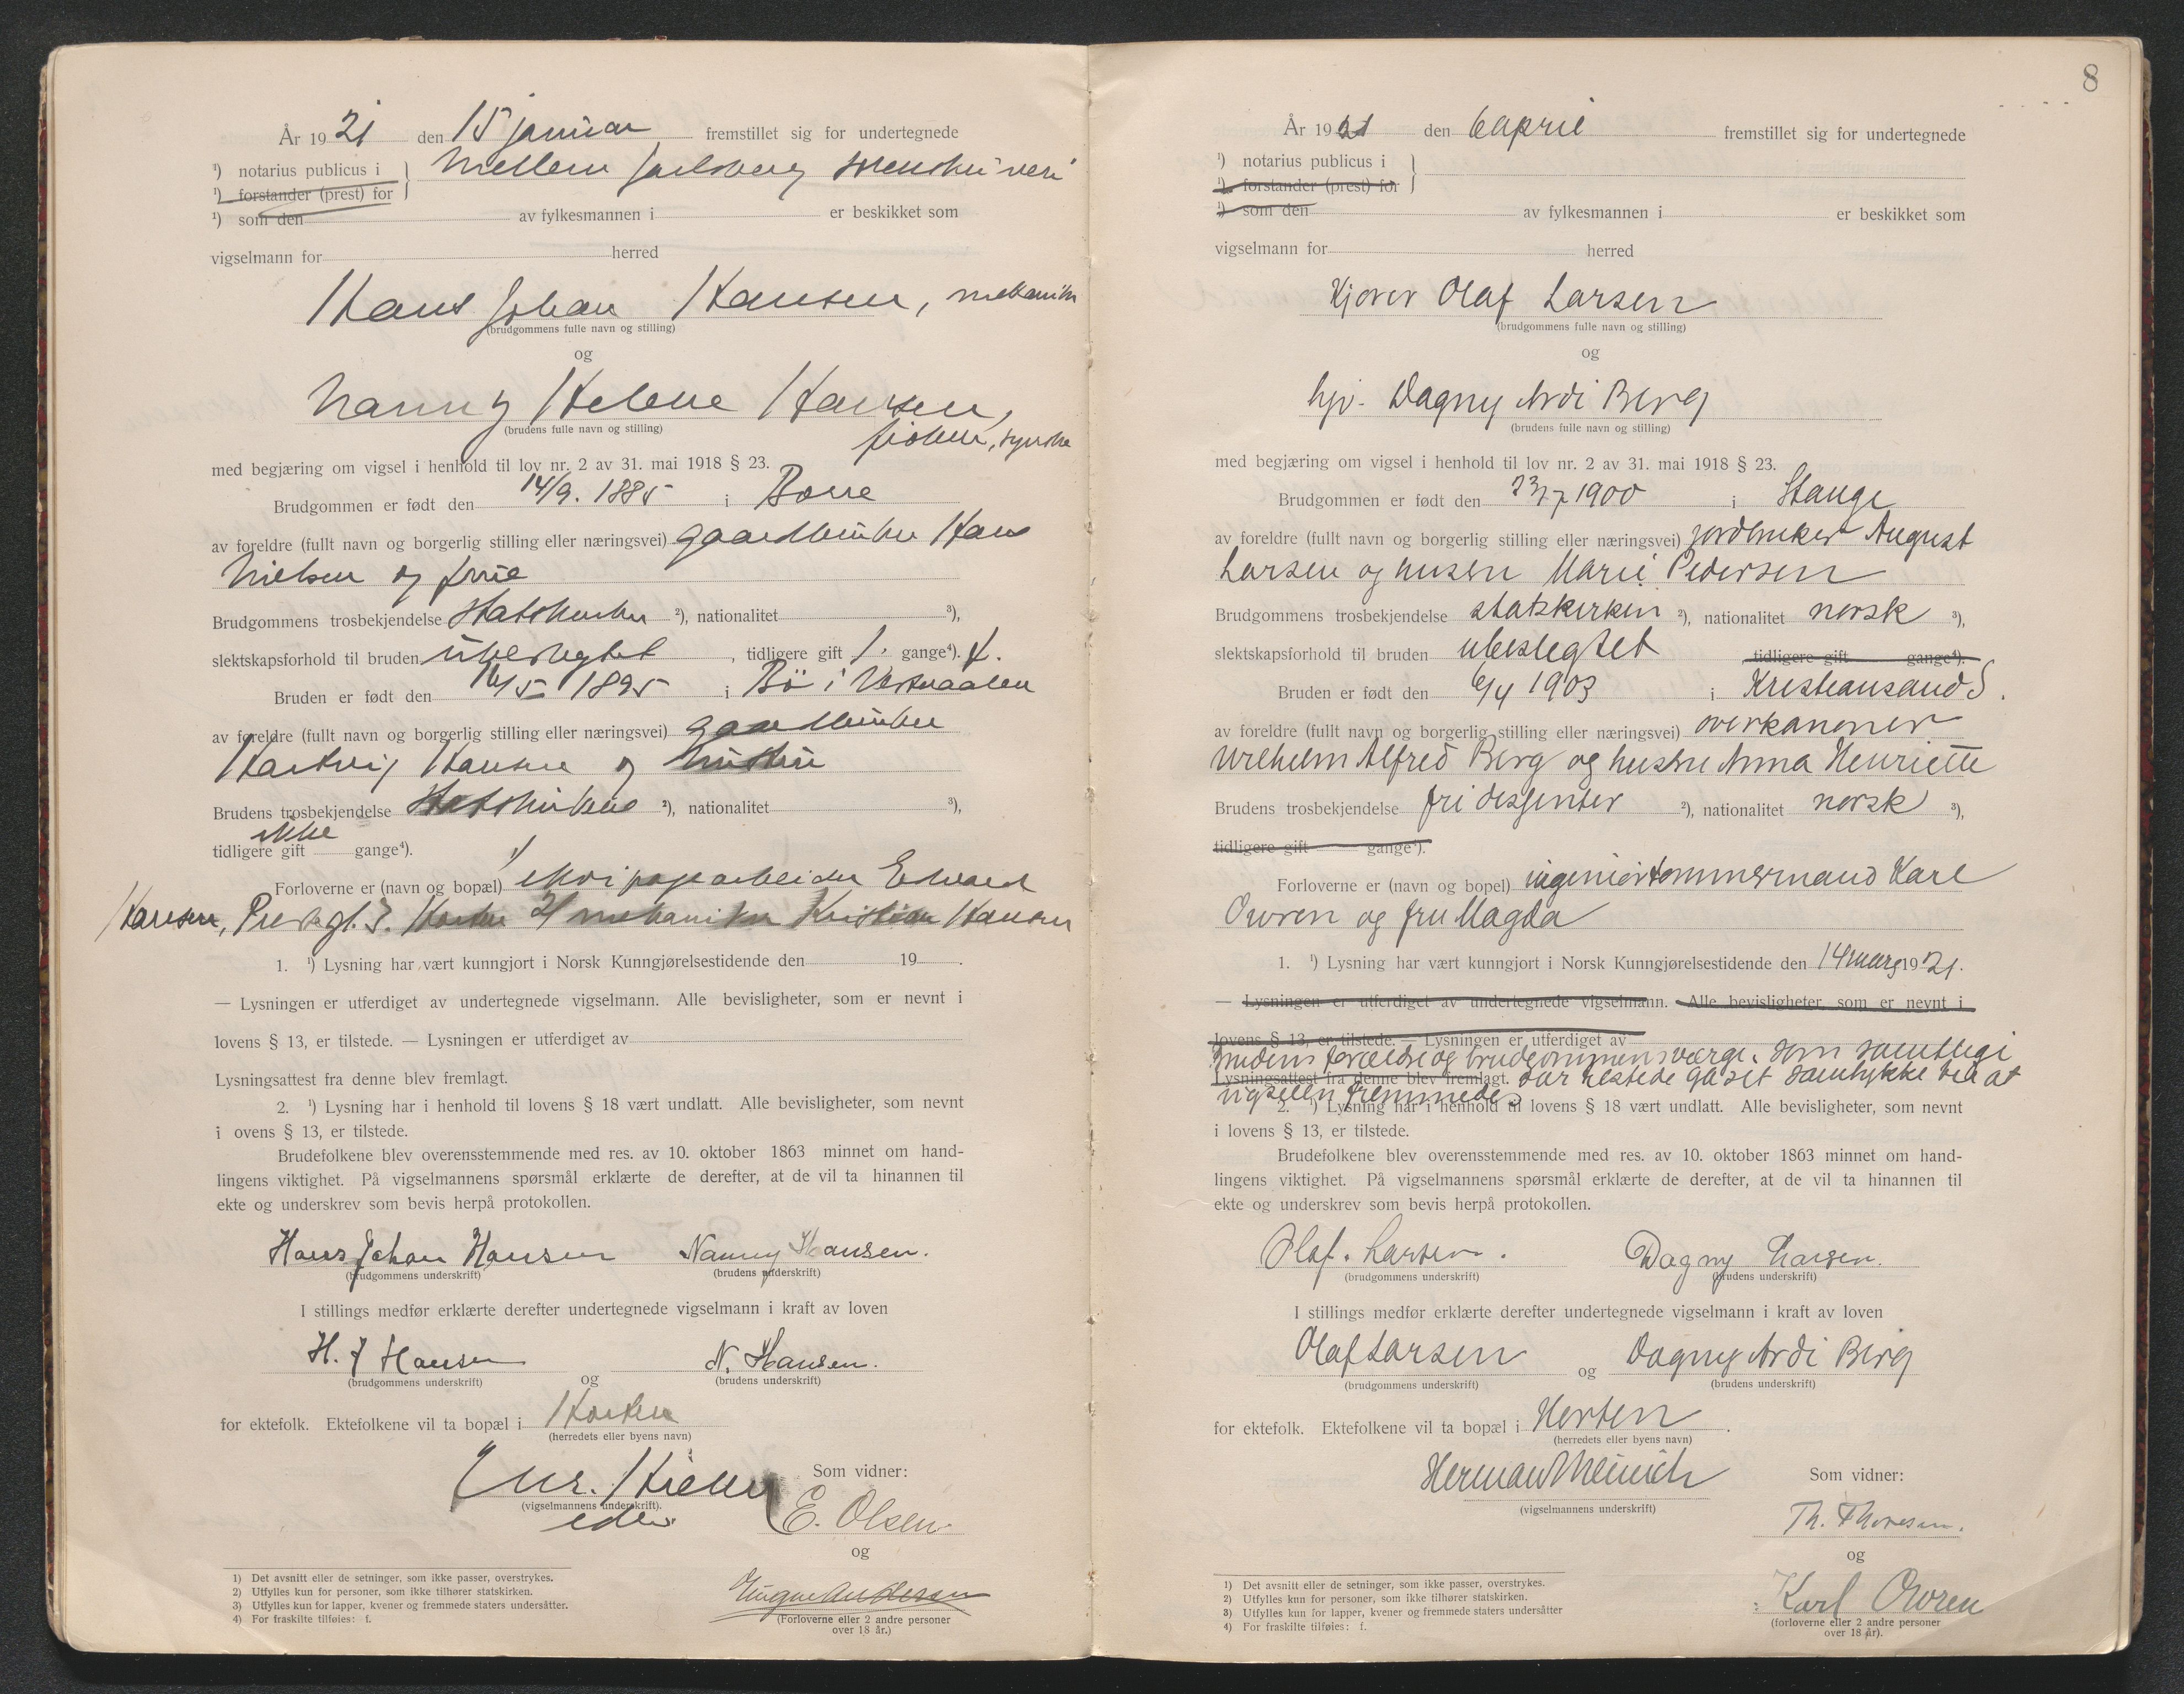 År 1921 den 15 januar fremstillet sig for undertegnede
¹) notarius publicus i } Mellem Jarlsberg sorenskriveri
¹) forstander (prest) for
¹) som den av fylkesmannen i er beskikket som
vigselmann for herred
Hans Johan Hansen, mekaniker
(brudgommens fulle navn og stilling)
og
Nanny Helene Hansen,
(brudens fulle navn og stilling)
frøken, syerske
med begjæring om vigsel i henhold til lov nr. 2 av 31. mai 1918 § 23.
Brudgommen er født den 14/9. 1885 i Borre
av foreldre (fullt navn og borgerlig stilling eller næringsvei) gaardbruker Hans
Nielsen og frue
Brudgommens trosbekjendelse Statskirken ²), nationalitet ³),
slektskapsforhold til bruden ubeslegtet, tidligere gift 1. gange⁴). f.
Bruden er født den 16/5 1895 i Bö i Vesteraalen
av foreldre (fullt navn og borgerlig stilling eller næringsvei) gaardbruker
Hartvig Hansen og hustru
Brudens trosbekjendelse Statskirken ²), nationalitet ³),
ikke
tidligere gift gange⁴).
Forloverne er (navn og bopæl) 1/ ekvipagearbeider Edvard
Hansen, Prestegt. 3. Horten 2/ mekaniker Kristian Hansen
1. ¹) Lysning har vært kunngjort i Norsk Kunngjørelsestidende den 19 .
— Lysningen er utferdiget av undertegnede vigselmann. Alle bevisligheter, som er nevnt i
lovens § 13, er tilstede. — Lysningen er utferdiget av
Lysningsattest fra denne blev fremlagt.
2. ¹) Lysning har i henhold til lovens § 18 vært undlatt. Alle bevisligheter, som nevnt
i ovens § 13, er tilstede.
Brudefolkene blev overensstemmende med res. av 10. oktober 1863 minnet om hand-
lingens viktighet. På vigselmannens spørsmål erklærte de derefter, at de vil ta hinannen til
ekte og underskrev som bevis herpå protokollen.
Hans Johan Hansen Nanny Hansen.
(brudgommens underskrift) (brudens underskrift)
I stillings medfør erklærte derefter undertegnede vigselmann i kraft av loven
H. J Hansen N. Hansen.
(brudgommens underskrift) og (brudens underskrift)
for ektefolk. Ektefolkene vil ta bopæl i Horten
(herredets eller byens navn)
Som vidner:
(vigselmannens underskrift).
E. Olsen
og
(Forloverne eller 2 andre personer
over 18 år.)
1) Det avsnitt eller de setninger, som ikke passer, overstrykes.
2) Utfylles kun for personer, som ikke tilhører statskirken.
3) Utfylles kun for lapper, kvener og fremmede staters undersåtter.
4) For fraskilte tilføies: f.
8
År 1921 den 6 april fremstillet sig for undertegnede
¹) notarius publicus i }
¹) forstander (prest) for
¹) som den av fylkesmannen i er beskikket som
vigselmann for herred
Kjører Olaf Larsen
(brudgommens fulle navn og stilling)
og
hjv. Dagny Ardi Berg
(brudens fulle navn og stilling)
med begjæring om vigsel i henhold til lov nr. 2 av 31. mai 1918 § 23.
Brudgommen er født den 23/7 1900 i Stange
av foreldre (fullt navn og borgerlig stilling eller næringsvei) jordbruker August
Larsen og husru Marie Pedersen
Brudgommens trosbekjendelse statskirken ²), nationalitet norsk ³),
slektskapsforhold til bruden ubeslegtet tidligere gift gange⁴).
Bruden er født den 6/4 1903 i Kristiansand S.
av foreldre (fullt navn og borgerlig stilling eller næringsvei) overkanoner
Wilhelm Alfred Berg og husru Anna Henriette
Brudens trosbekjendelse fri dessenter ²), nationalitet norsk ³),
tidligere gift gange⁴).
Forloverne er (navn og bopel) ingeniørtømmermand Karl
Owren og fru Magda
1. ¹) Lysning har vært kunngjort i Norsk Kunngjørelsestidende den 14 mars 1921.
— Lysningen er utferdiget av undertegnede vigselmann. Alle bevisligheter, som er nevnt i
lovens § 13, er tilstede. — Lysningen er utferdiget av
brudens forældre og brudgommens værge, som samtlige
Lysningsattest fra denne blev fremlagt. var tilstede ga set samtykke til at
vigselen fremmedes
2. ¹) Lysning har i henhold til lovens § 18 vært undlatt. Alle bevisligheter, som nevnt
i lovens § 13, er tilstede.
Brudefolkene blev overensstemmende med res. av 10. oktober 1863 minnet om hand-
lingens viktighet. På vigselmannens spørsmål erklærte de derefter, at de vil ta hinannen til
ekte og underskrev som bevis herpå protokollen.
Olaf. Larsen. Dagny Larsen.
(brudgommens underskrift) (brudens underskrift)
I stillings medfør erklærte derefter undertegnede vigselmann i kraft av loven
Olaf Larsen og Dagny Ardi Berg
(brudgommens underskrift) (brudens underskrift)
for ektefolk. Ektefolkene vil ta bopæl i Horten.
(herredets eller byens navn)
Herman Meinich Som vidner:
(vigselmannens underskrift)
Th. Thoresen.
og
Karl Owren
(forloverne eller 2 andre personer
over 18 år).
1) Det avsnitt eller de setninger, som ikke passer, overstrykes.
2) Utfylles kun for personer, som ikke tilhører statskirken.
3) Utfylles kun for lapper, kvener og fremmede staters undersåtter
4) For fraskilte tilføies: f.